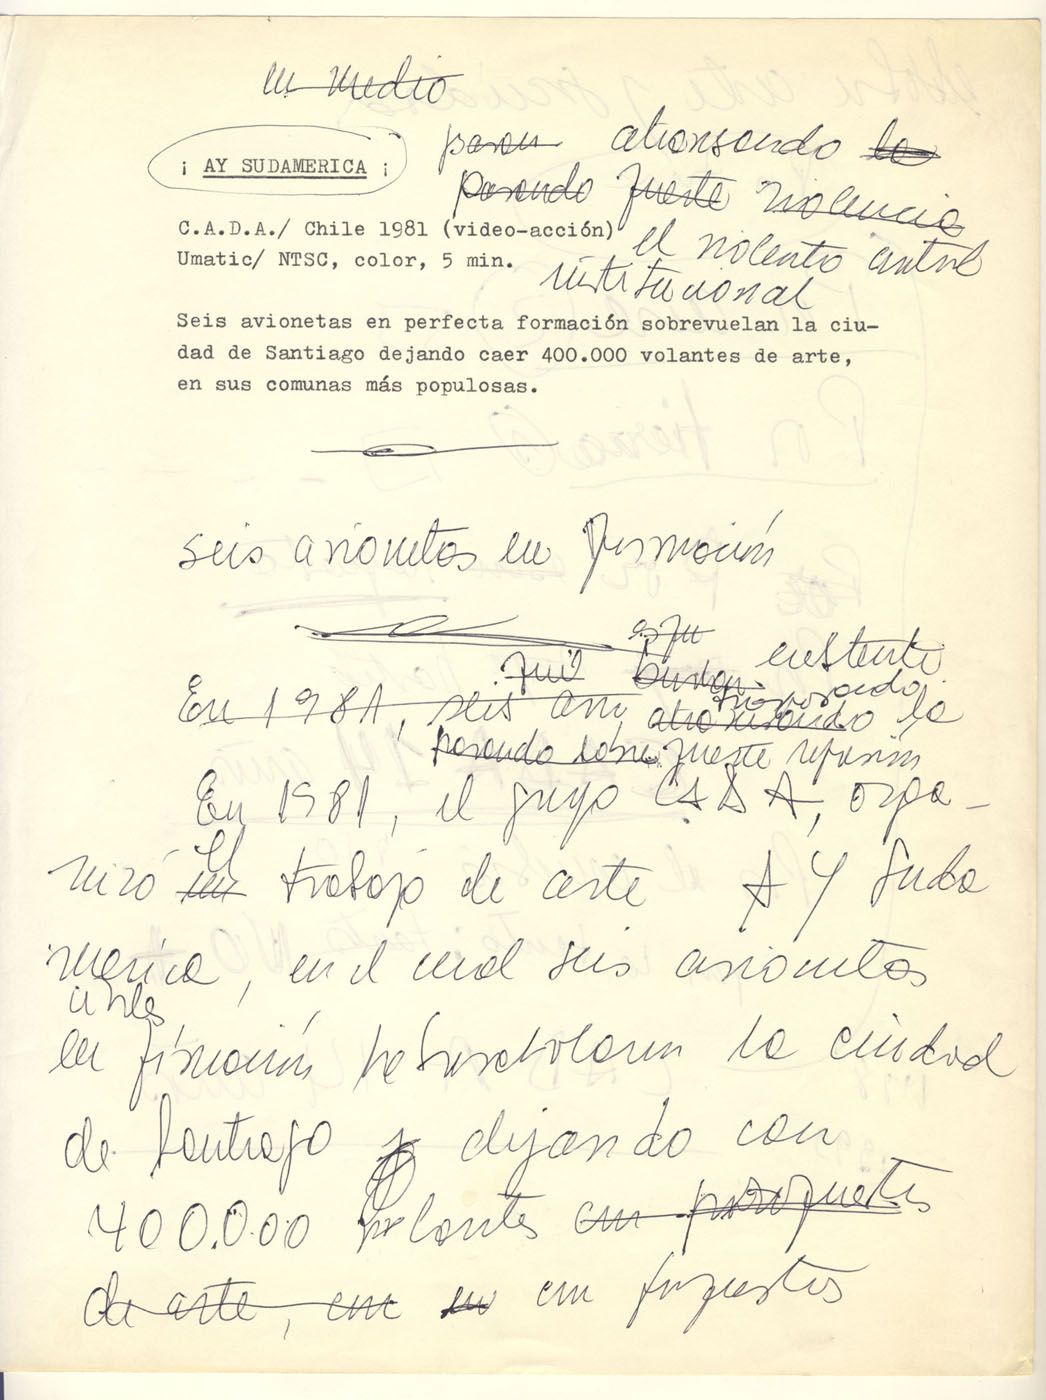 en medio
pasan atravesando la
¡ AY SUDAMERICA ¡
pasando fuerte violencia
C.A.D.A./ Chile 1981 (video-acción)
el violento control
Umatic/ NTSC, color, 5 min.
institucional
Seis avionetas en perfecta formación sobrevuelan la ciu-
dad de Santiago dejando caer 400.000 volantes de arte,
en sus comunas más populosas.
seis avionetas en formación
existente
En 1981, seis avi atravesando la
pasando sobre fuerte represión
En 1981, el grupo CADA, orga-
el
nizó un trabajo de arte AY Suda
merica, en el cual seis avionetas
civiles
en formación sobrevolaron la ciudad
de Santiago y dejando caer
400.000 volantes con propuestas
de arte, con en con propuestas